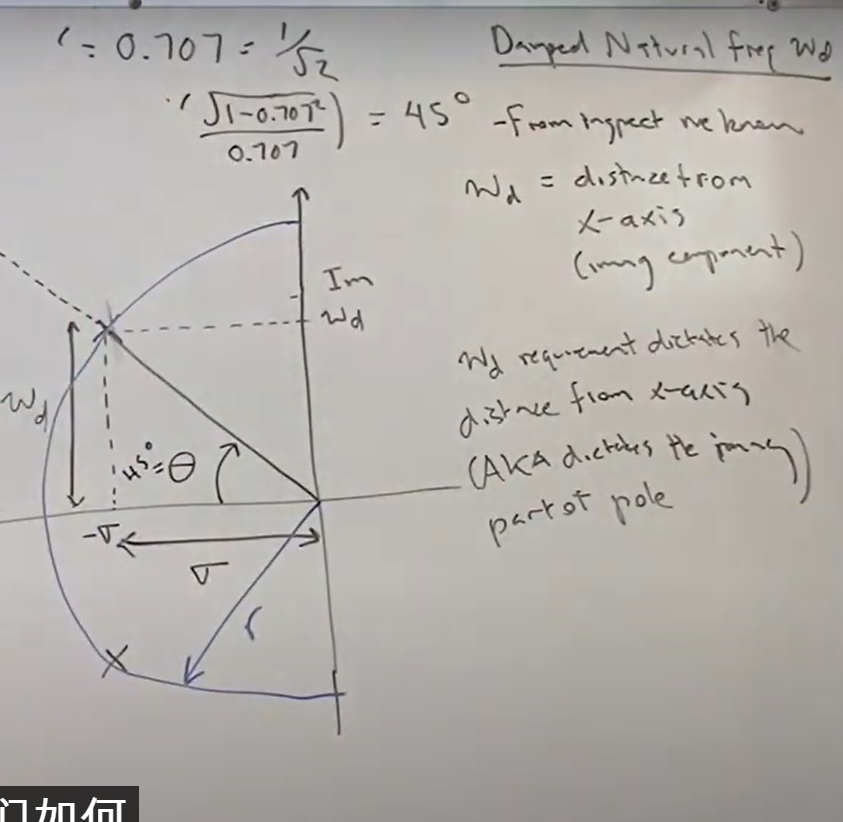 = 0.707 = 1/√2
√1-0.707² / 0.707 ) = 45°
Damped Natural freq Wd
-From inspect we know
Wd = distance from
x-axis
(imag component)
Im
Wd
Wd requirement dictates the
distance from x-axis
(AKA dictates the imag
part of pole
Wd
45°=θ
-σ
σ
r
们如何